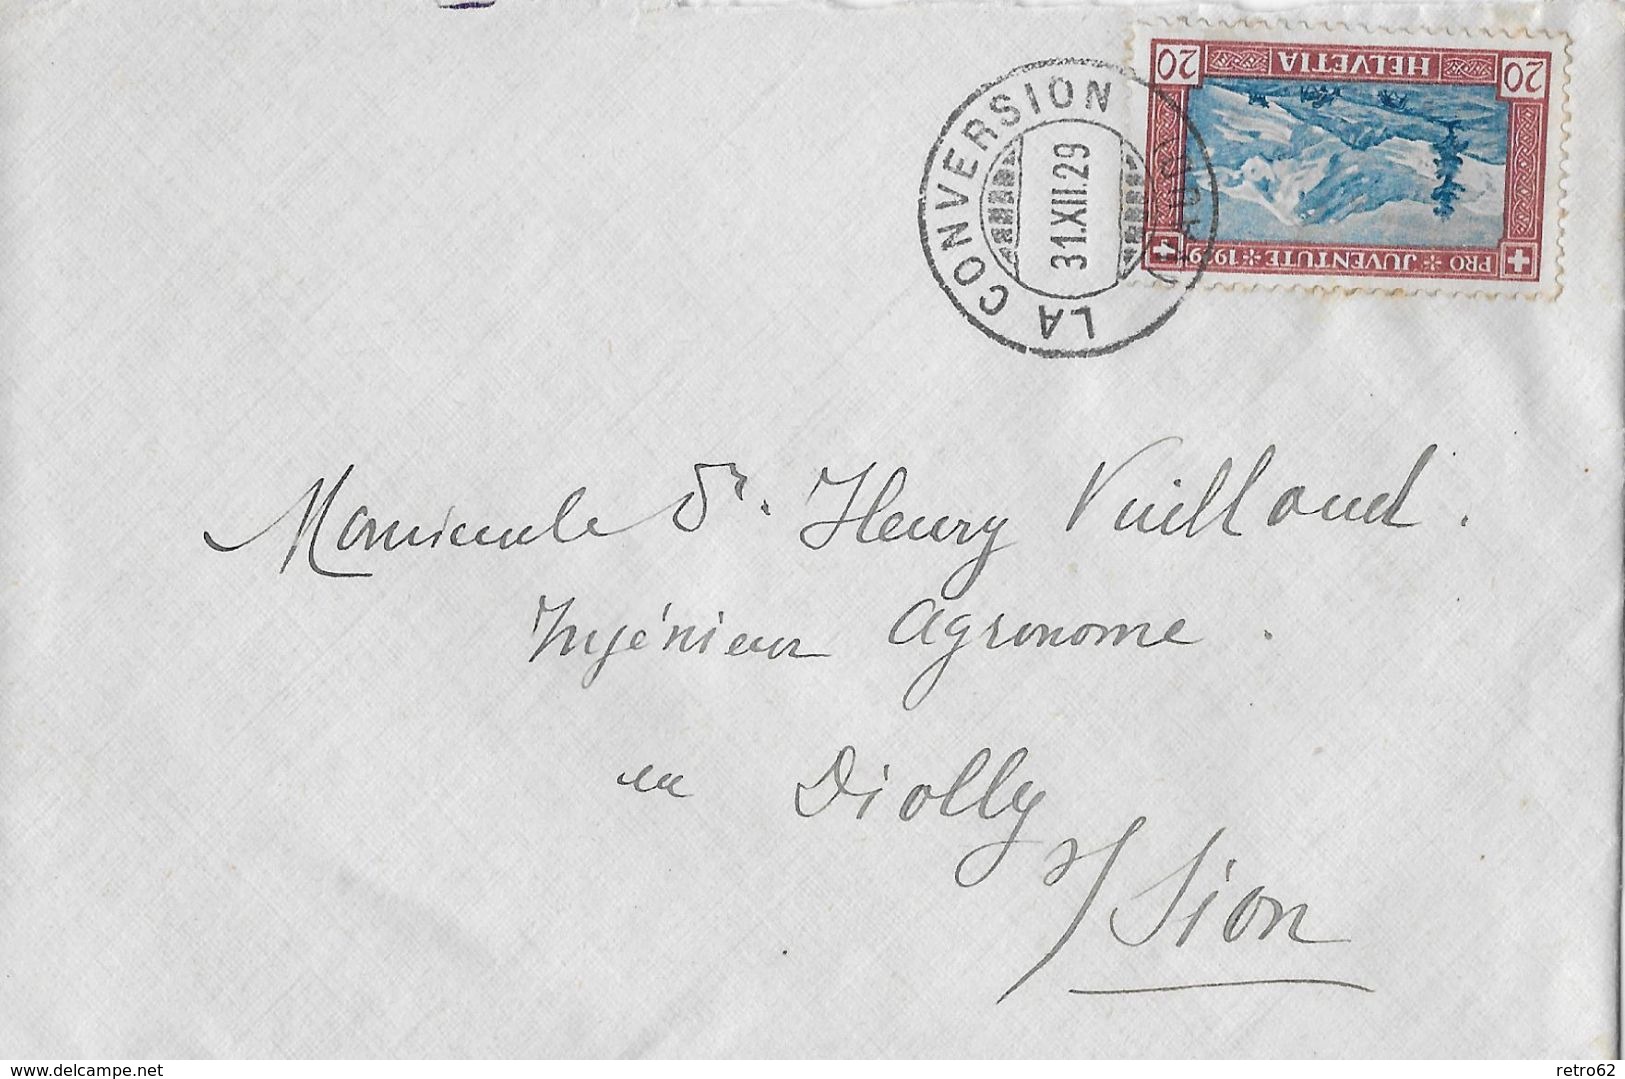 20 HELVETIA 20
PRO JUVENTUTE 1929
LA CONVERSION
31.XII.29
Monsieur le Dr. Henry Wuilloud.
Ingénieur Agronome.
en Diolly
s/Sion
delcampe.net
retro62